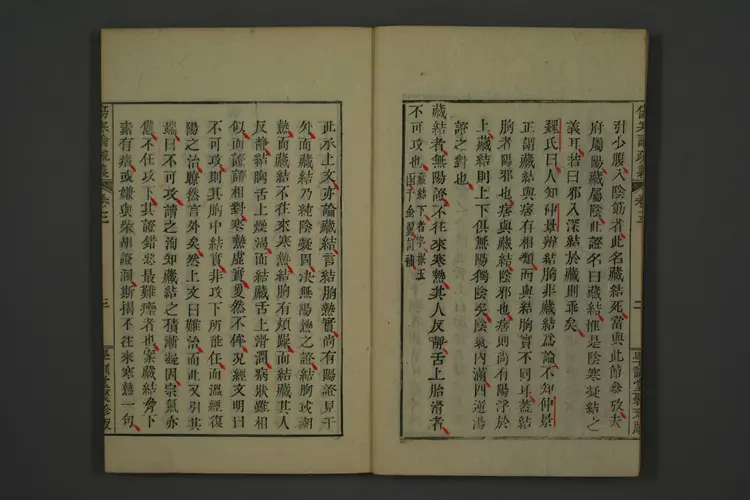 引少腹入陰筋者此名藏結死當與此節參攷夫
府屬陽藏屬陰此證名曰藏結惟是陰寒凝結之
義耳若曰邪入深結於藏則乖矣
魏氏曰人知仲景辨結胸非藏結爲論不知仲景
正謂藏結與痞有相類而與結胸實不同耳蓋結
胸者陽邪也痞與藏結陰邪也痞則尚有陽浮於
上藏結則上下俱無陽獨陰矣陰氣內滿四逆湯
證之對也
藏結者無陽證不往來寒熱其人反靜舌上胎滑者
不可攻也
藏結下者字據玉
函千金翼訂補
二
此承上文亦論藏結言結胸熱實尚有陽證見于
外而藏結乃純陰凝固決無陽熱之證結胸或潮
熱而藏結不往來寒熱結胸有煩躁而結藏其人
反靜結胸舌上燥渴而結藏舌上滑潤病狀雖相
似而證證相對寒熱虛實夐然不侔況經文明曰
不可攻則其胸中結實非攻下所能任而溫經復
陽之治瞭然言外矣然上文曰難治而此又引其
端曰不可攻謂之洵知藏結之積漸凝固宗氣亦
憊不任攻下其證錯惡最難療者也案藏結脅下
素有痞或嫌與柴胡證溷斯揭不往來寒熱一句
傷寒論疏義
卷三
三